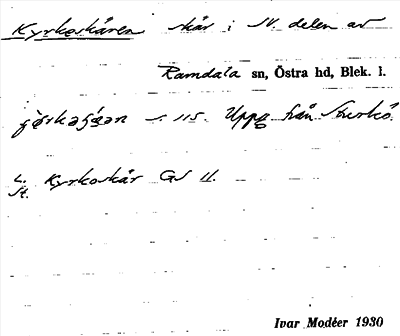 Kyrkoskären skär i SV. delen av
Ramdala sn, Östra hd, Blek. l.
s. 115. Uppg. från Sturkö.
L. St. Kyrkoskär GS 11.
Ivar Modéer 1930